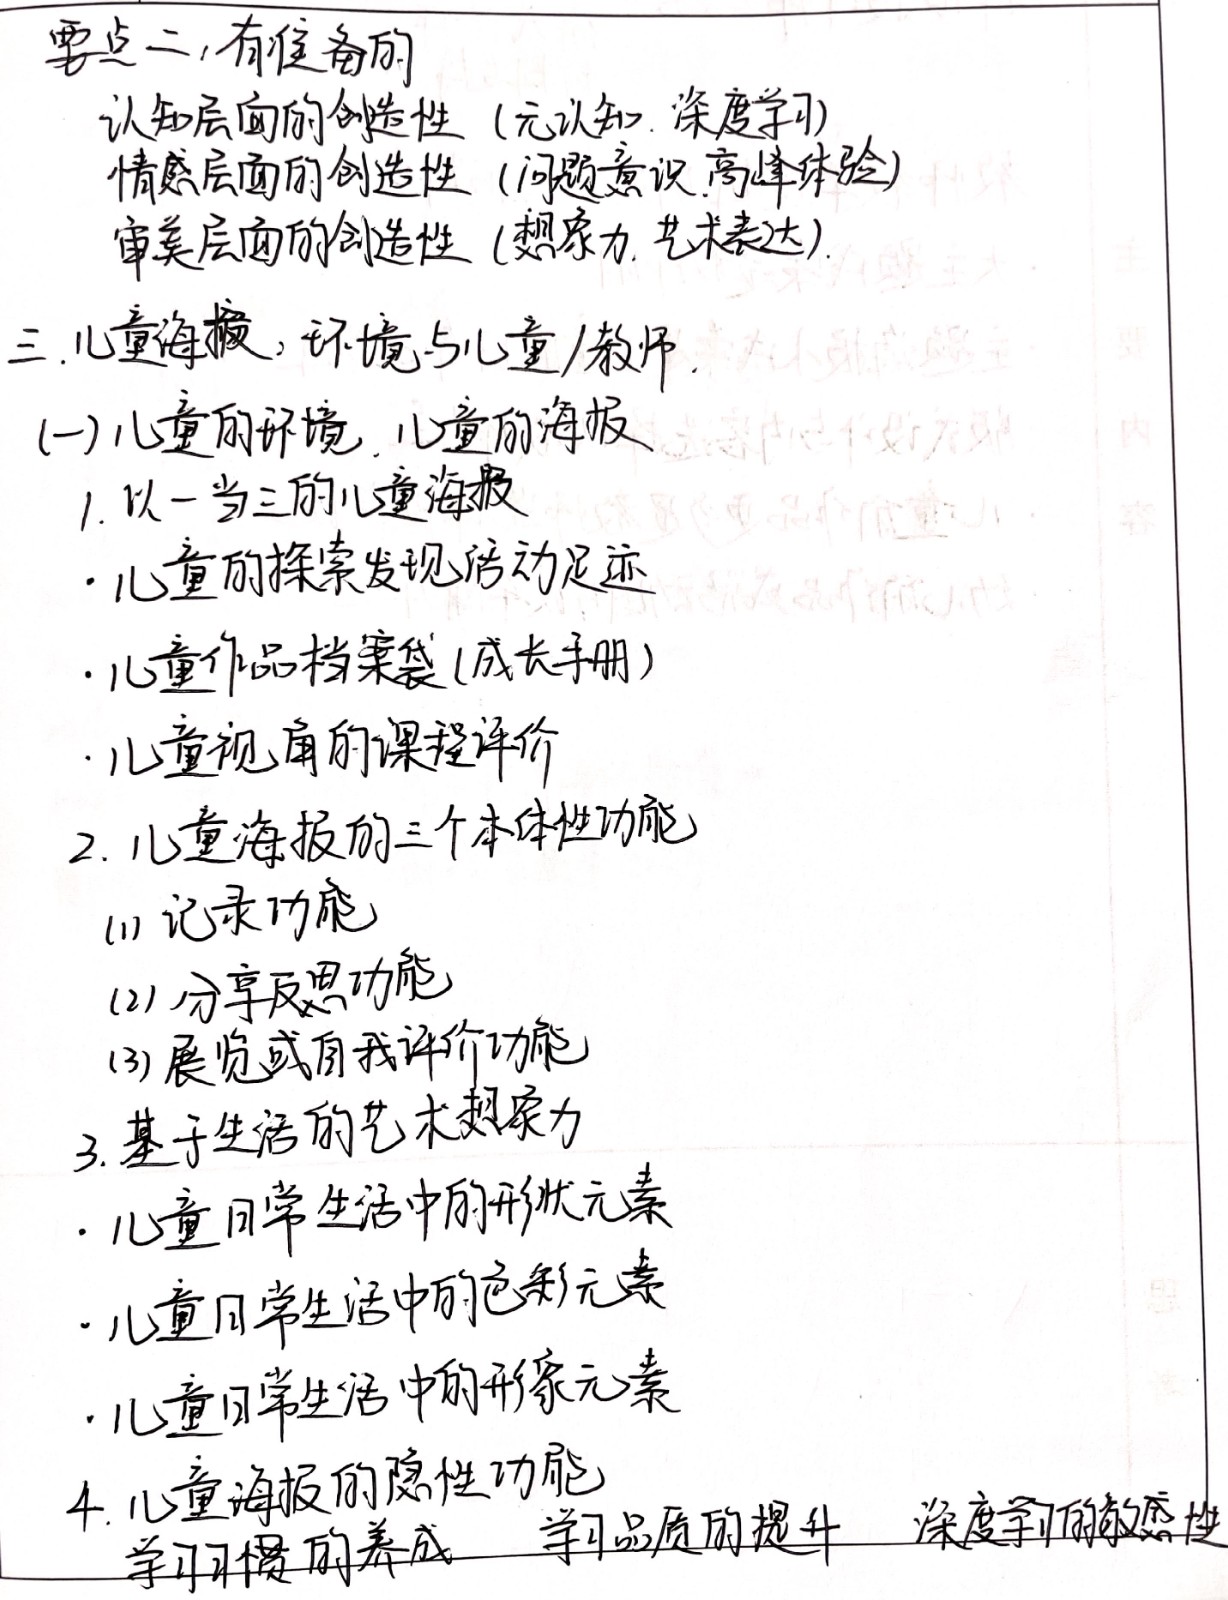 要点二，有准备的
认知层面的创造性（元认知、深度学习）
情感层面的创造性（问题意识、高峰体验）
审美层面的创造性（想象力、艺术表达）
三、儿童海报，环境与儿童/教师.
(一)儿童的环境、儿童的海报
1.以一当三的儿童海报
·儿童的探索发现活动足迹
·儿童作品档案袋(成长手册)
·儿童视角的课程评价
2.儿童海报的三个本体性功能
(1)记录功能
(2)分享反思功能
(3)展览或自我评价功能
3.基于生活的艺术想象力
·儿童日常生活中的形状元素
·儿童日常生活中的色彩元素
·儿童日常生活中的形象元素
4.儿童海报的隐性功能
学习习惯的养成 学习品质的提升 深度学习的敏感性